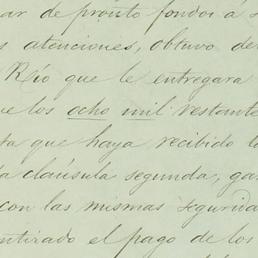 ar de pronto fondos á s
s atenciones, obtuvo de
Río que le entregara
ue los ocho mil restante
ta que haya recibido lo
a cláusula segunda, ga
con las mismas segurida
entirado el pago de los